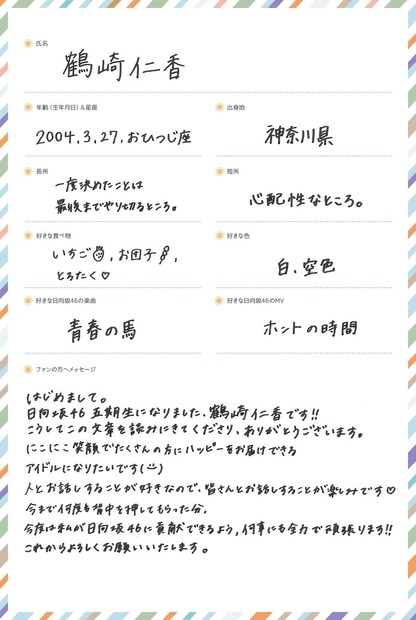 氏名
鶴崎仁香
年齢(生年月日)&星座
出身地
2004.3.27, おひつじ座
神奈川県
長所
短所
一度決めたことは
最後までやり切るところ。
心配性なところ。
好きな食べ物
好きな色
いちご, お団子,
とろたく♡
白、空色
好きな日向坂46の楽曲
好きな日向坂46のMV
青春の馬
ホントの時間
ファンの方へメッセージ
はじめまして。
日向坂46 五期生になりました、鶴崎仁香です!!
こうしてこの文章を読みにきてくださり、ありがとうございます。
にこにこ笑顔でたくさんの方にハッピーをお届けできる
アイドルになりたいです(¨̮)
人とお話しすることが好きなので、皆さんとお話しすることが楽しみです♡
今まで何度も背中を押してもらった分、
今度は私が日向坂46に貢献できるよう、何事にも全力で頑張ります!!
これからよろしくお願いいたします。